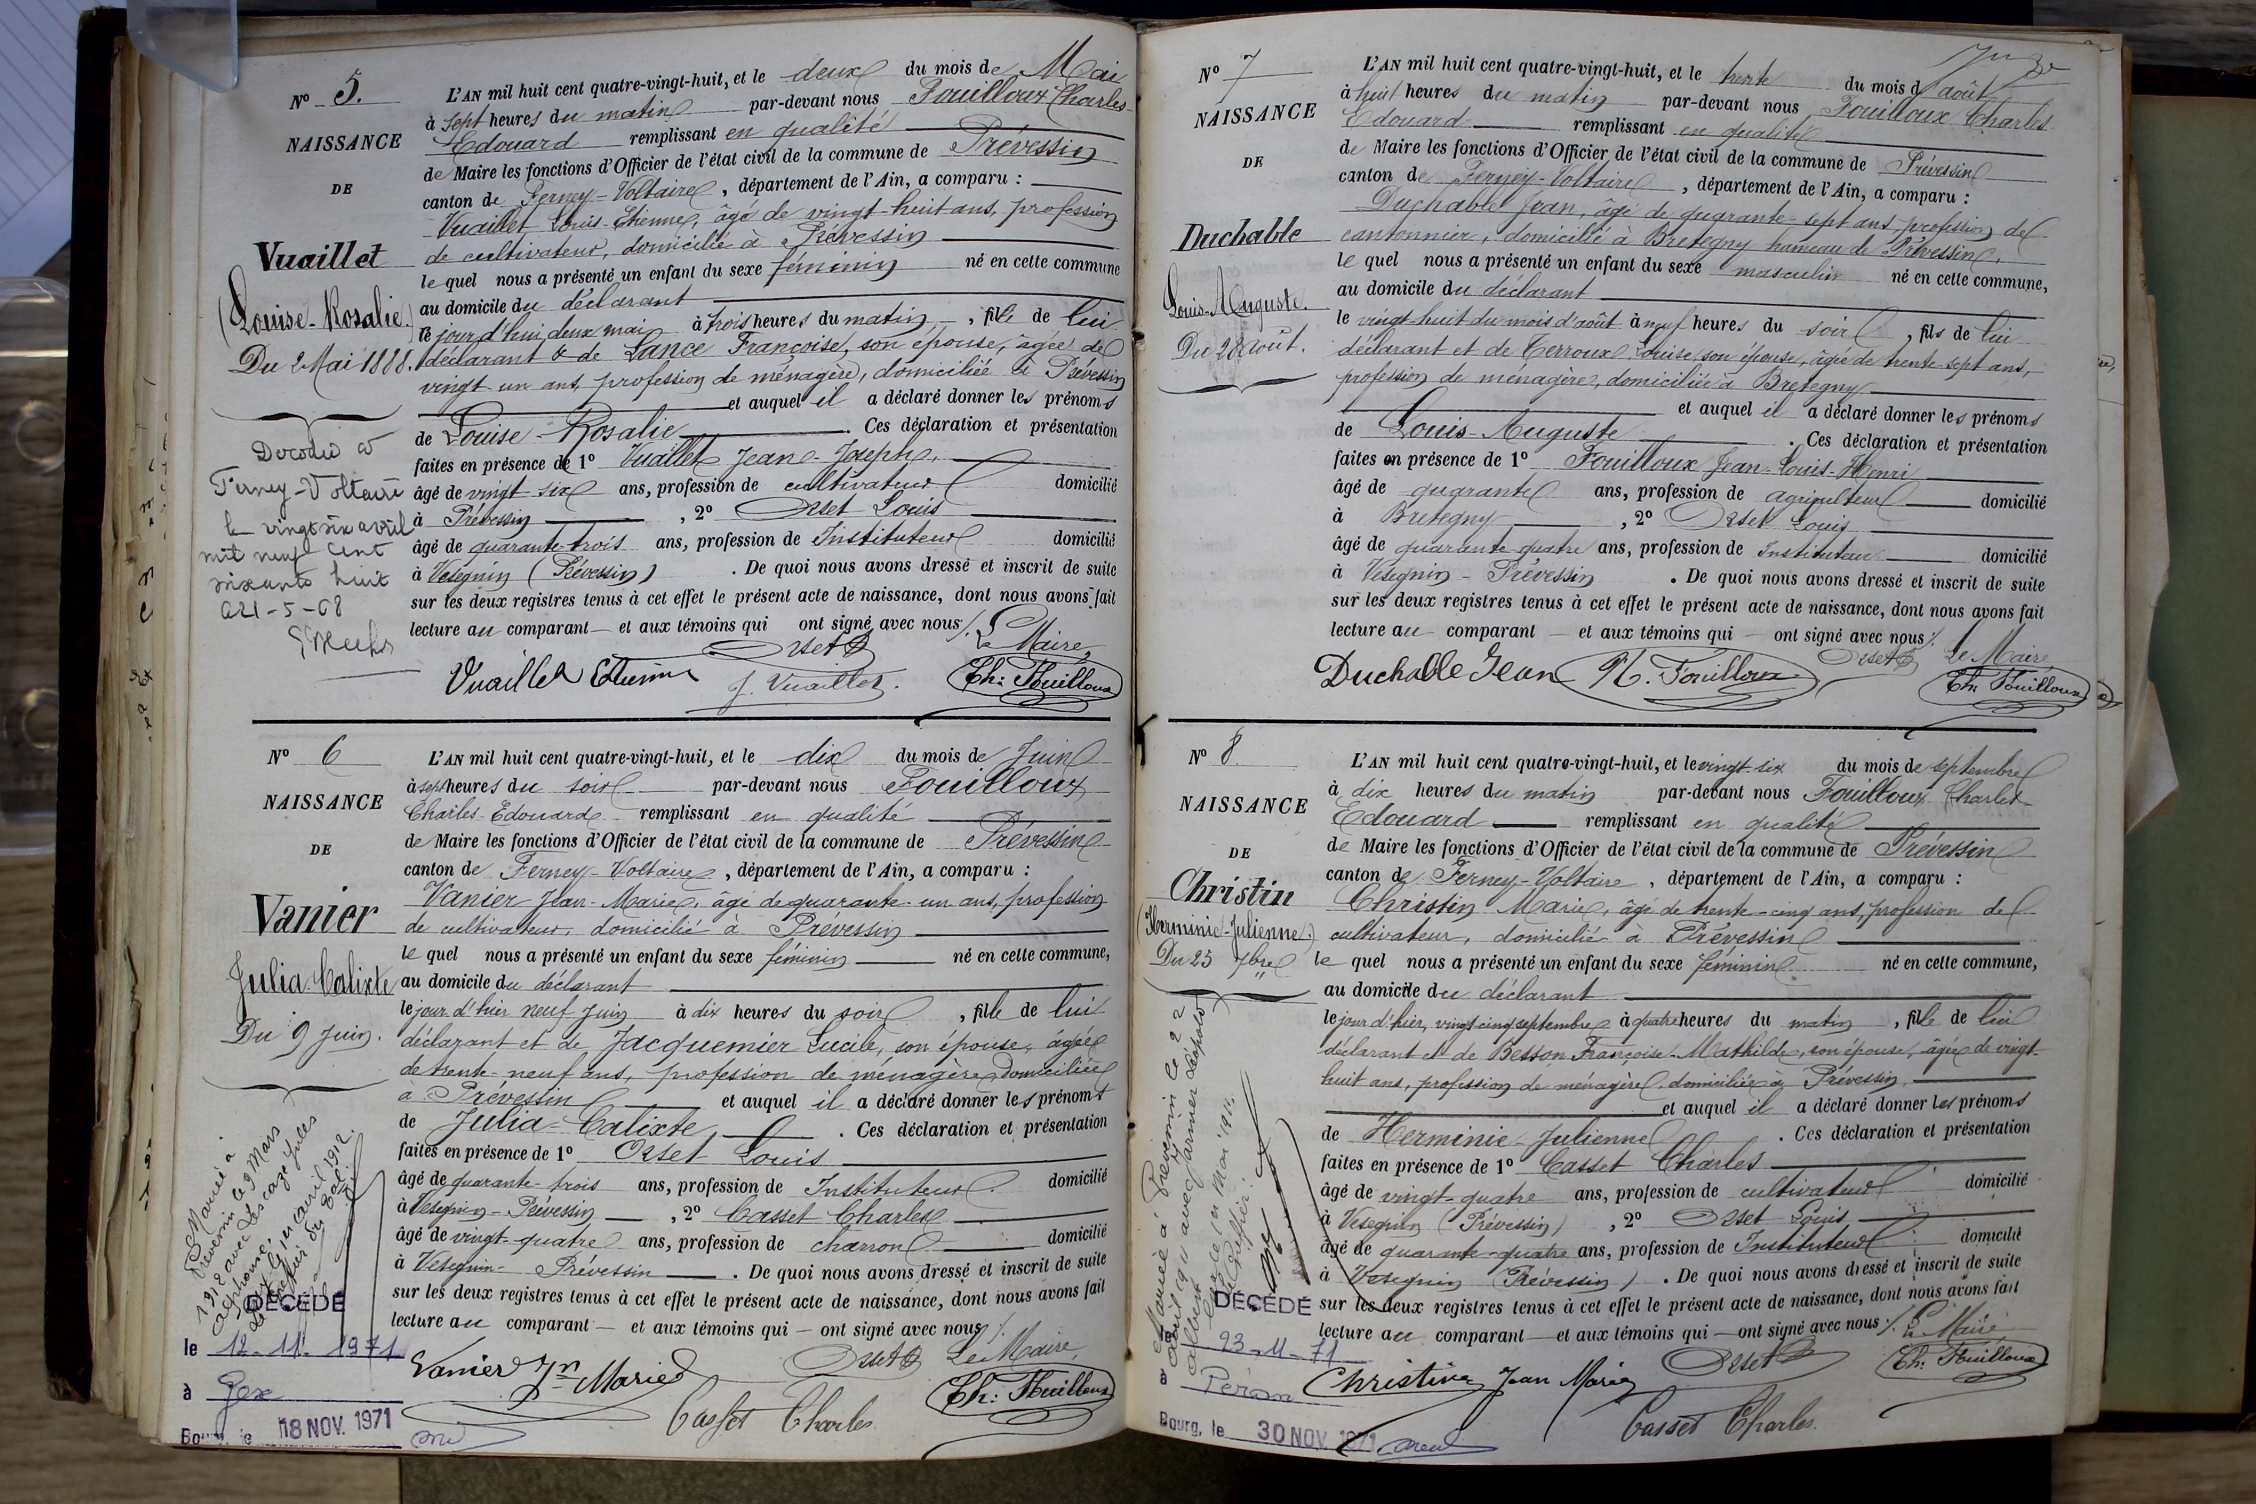 N° 5.
NAISSANCE
DE
Vuaillet
(Louise-Rosalie.)
Du 2 Mai 1888.
Décédée à
Ferney-Voltaire
le vingt six avril
mil neuf cent
soixante huit
L'AN mil huit cent quatre-vingt-huit, et le deux du mois de Mai
à sept heures du matin par-devant nous Fouilloux Charles
Edouard remplissant en qualité
de Maire les fonctions d'Officier de l'état civil de la commune de Prévessin
canton de Ferney-Voltaire, département de l'Ain, a comparu :
Vuaillet Louis-Etienne, âgé de vingt-huit ans, profession
de cultivateur, domicilié à Prévessin
le quel nous a présenté un enfant du sexe féminin né en cette commune
au domicile du déclarant
le jour d'hui deux mai à trois heures du matin, fille de lui
déclarant & de Lance Françoise, son épouse, âgée de
vingt un ans, profession de ménagère, domiciliée à Prévessin
et auquel il a déclaré donner les prénoms
de Louise-Rosalie. Ces déclaration et présentation
faites en présence de 1° Vuaillet Jean-Joseph,
âgé de vingt six ans, profession de cultivateur domicilié
à Prévessin, 2° Orset Louis
âgé de quarante-trois ans, profession de Instituteur domicilié
à Vésegnin (Prévessin). De quoi nous avons dressé et inscrit de suite
sur les deux registres tenus à cet effet le présent acte de naissance, dont nous avons fait
lecture au comparant et aux témoins qui ont signé avec nous.
Orset Le Maire,
Vuaillet Etienne J. Vuaillet. Ch: Fouilloux
N° 6
NAISSANCE
DE
Vanier
Julia-Calixte
Du 9 Juin.
Mariée à
Prévessin le 9 Mars
1912 avec Descaze Jules
Alphonse.
DÉCÉDÉ
le 12-11-1971
à Gex
Bourg, le 18 NOV. 1971
L'AN mil huit cent quatre-vingt-huit, et le dix du mois de Juin
à sept heures du soir par-devant nous Fouilloux
Charles-Edouard remplissant en qualité
de Maire les fonctions d'Officier de l'état civil de la commune de Prévessin
canton de Ferney-Voltaire, département de l'Ain, a comparu :
Vanier Jean-Marie, âgé de quarante-un ans, profession
de cultivateur, domicilié à Prévessin
le quel nous a présenté un enfant du sexe féminin né en cette commune,
au domicile du déclarant
le jour d'hier neuf Juin à dix heures du soir, fille de lui
déclarant et de Jacquemier Lucile, son épouse, âgée
de trente-neuf ans, profession de ménagère, domiciliée
à Prévessin et auquel il a déclaré donner les prénoms
de Julia-Calixte. Ces déclaration et présentation
faites en présence de 1° Orset Louis
âgé de quarante-trois ans, profession de Instituteur domicilié
à Vésegnin-Prévessin, 2° Casset Charles
âgé de vingt-quatre ans, profession de charron domicilié
à Vésegnin-Prévessin. De quoi nous avons dressé et inscrit de suite
sur les deux registres tenus à cet effet le présent acte de naissance, dont nous avons fait
lecture au comparant et aux témoins qui ont signé avec nous.
Vanier Jn Marie Orset Le Maire,
Casset Charles Ch: Fouilloux
N° 7
NAISSANCE
DE
Duchable
Louis-Auguste.
Du 28 août.
L'AN mil huit cent quatre-vingt-huit, et le trente du mois d'août
à huit heures du matin par-devant nous Fouilloux Charles
Edouard remplissant en qualité
de Maire les fonctions d'Officier de l'état civil de la commune de Prévessin
canton de Ferney-Voltaire, département de l'Ain, a comparu :
Duchable Jean, âgé de quarante-sept ans, profession de
cantonnier, domicilié à Bretegny hameau de Prévessin,
le quel nous a présenté un enfant du sexe masculin né en cette commune,
au domicile du déclarant
le vingt-huit du mois d'août à neuf heures du soir, fils de lui
déclarant et de Terroux Louise, son épouse, âgée de trente-sept ans,
profession de ménagère, domiciliée à Bretegny
et auquel il a déclaré donner les prénoms
de Louis-Auguste. Ces déclaration et présentation
faites en présence de 1° Fouilloux Jean-Louis-Henri
âgé de quarante ans, profession de agriculteur domicilié
à Bretegny, 2° Orset Louis
âgé de quarante quatre ans, profession de Instituteur domicilié
à Vésegnin-Prévessin. De quoi nous avons dressé et inscrit de suite
sur les deux registres tenus à cet effet le présent acte de naissance, dont nous avons fait
lecture au comparant et aux témoins qui ont signé avec nous.
Orset Le Maire
Duchable Jean H. Fouilloux Ch: Fouilloux
N° 8
NAISSANCE
DE
Christin
(Herminie-Julienne.)
Du 25 7bre
Mariée à Prévessin le 22
avril 1911 avec Jarnier Léopold
Albert.
DÉCÉDÉ
le 23-11-71
à Péron
Bourg, le 30 NOV. 1971
L'AN mil huit cent quatre-vingt-huit, et le vingt-six du mois de septembre
à dix heures du matin par-devant nous Fouilloux Charles
Edouard remplissant en qualité
de Maire les fonctions d'Officier de l'état civil de la commune de Prévessin
canton de Ferney-Voltaire, département de l'Ain, a comparu :
Christin Marie, âgé de trente-cinq ans, profession de
cultivateur, domicilié à Prévessin
le quel nous a présenté un enfant du sexe féminin né en cette commune,
au domicile du déclarant
le jour d'hier, vingt cinq septembre à quatre heures du matin, fille de lui
déclarant et de Besson Françoise-Mathilde, son épouse, âgée de vingt-
huit ans, profession de ménagère domiciliée à Prévessin,
et auquel il a déclaré donner les prénoms
de Herminie-Julienne. Ces déclaration et présentation
faites en présence de 1° Casset Charles
âgé de vingt-quatre ans, profession de cultivateur domicilié
à Vésegnin (Prévessin), 2° Orset Louis
âgé de quarante-quatre ans, profession de Instituteur domicilié
à Vésegnin (Prévessin). De quoi nous avons dressé et inscrit de suite
sur les deux registres tenus à cet effet le présent acte de naissance, dont nous avons fait
lecture au comparant et aux témoins qui ont signé avec nous.
Le Maire
Christin Jean Marie Orset Ch: Fouilloux
Casset Charles.